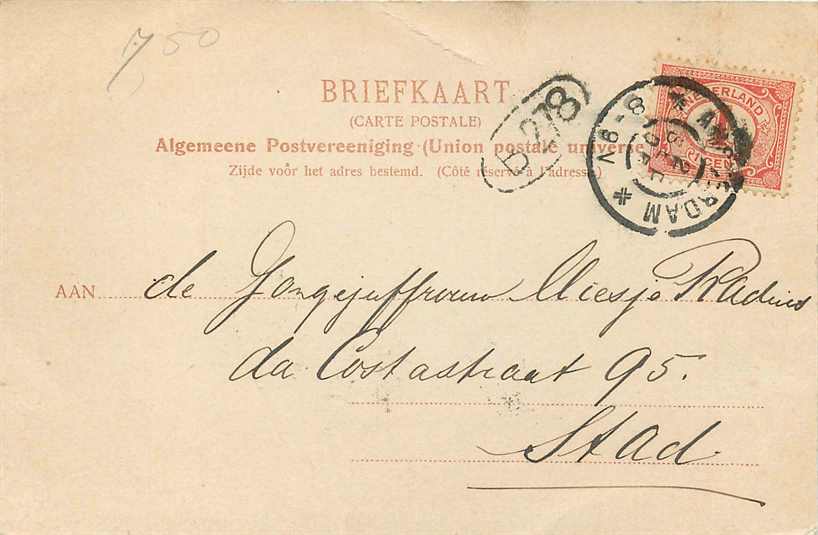 7 50
BRIEFKAART
(CARTE POSTALE)
Algemeene Postvereeniging (Union postale universe
Zijde voor het adres bestemd. (Côté réservé à l'adresse)
b 278
NEDERLAND
CENT
AMSTERDAM
8-9V
AAN de Jongejuffrouw Miesje Radius
da Costastraat 95.
Stad